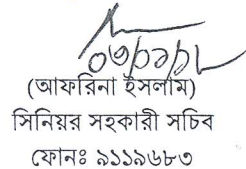 (আফরিনা ইসলাম)
সিনিয়র সহকারী সচিব
ফোনঃ ৯১১৯৬৮৩